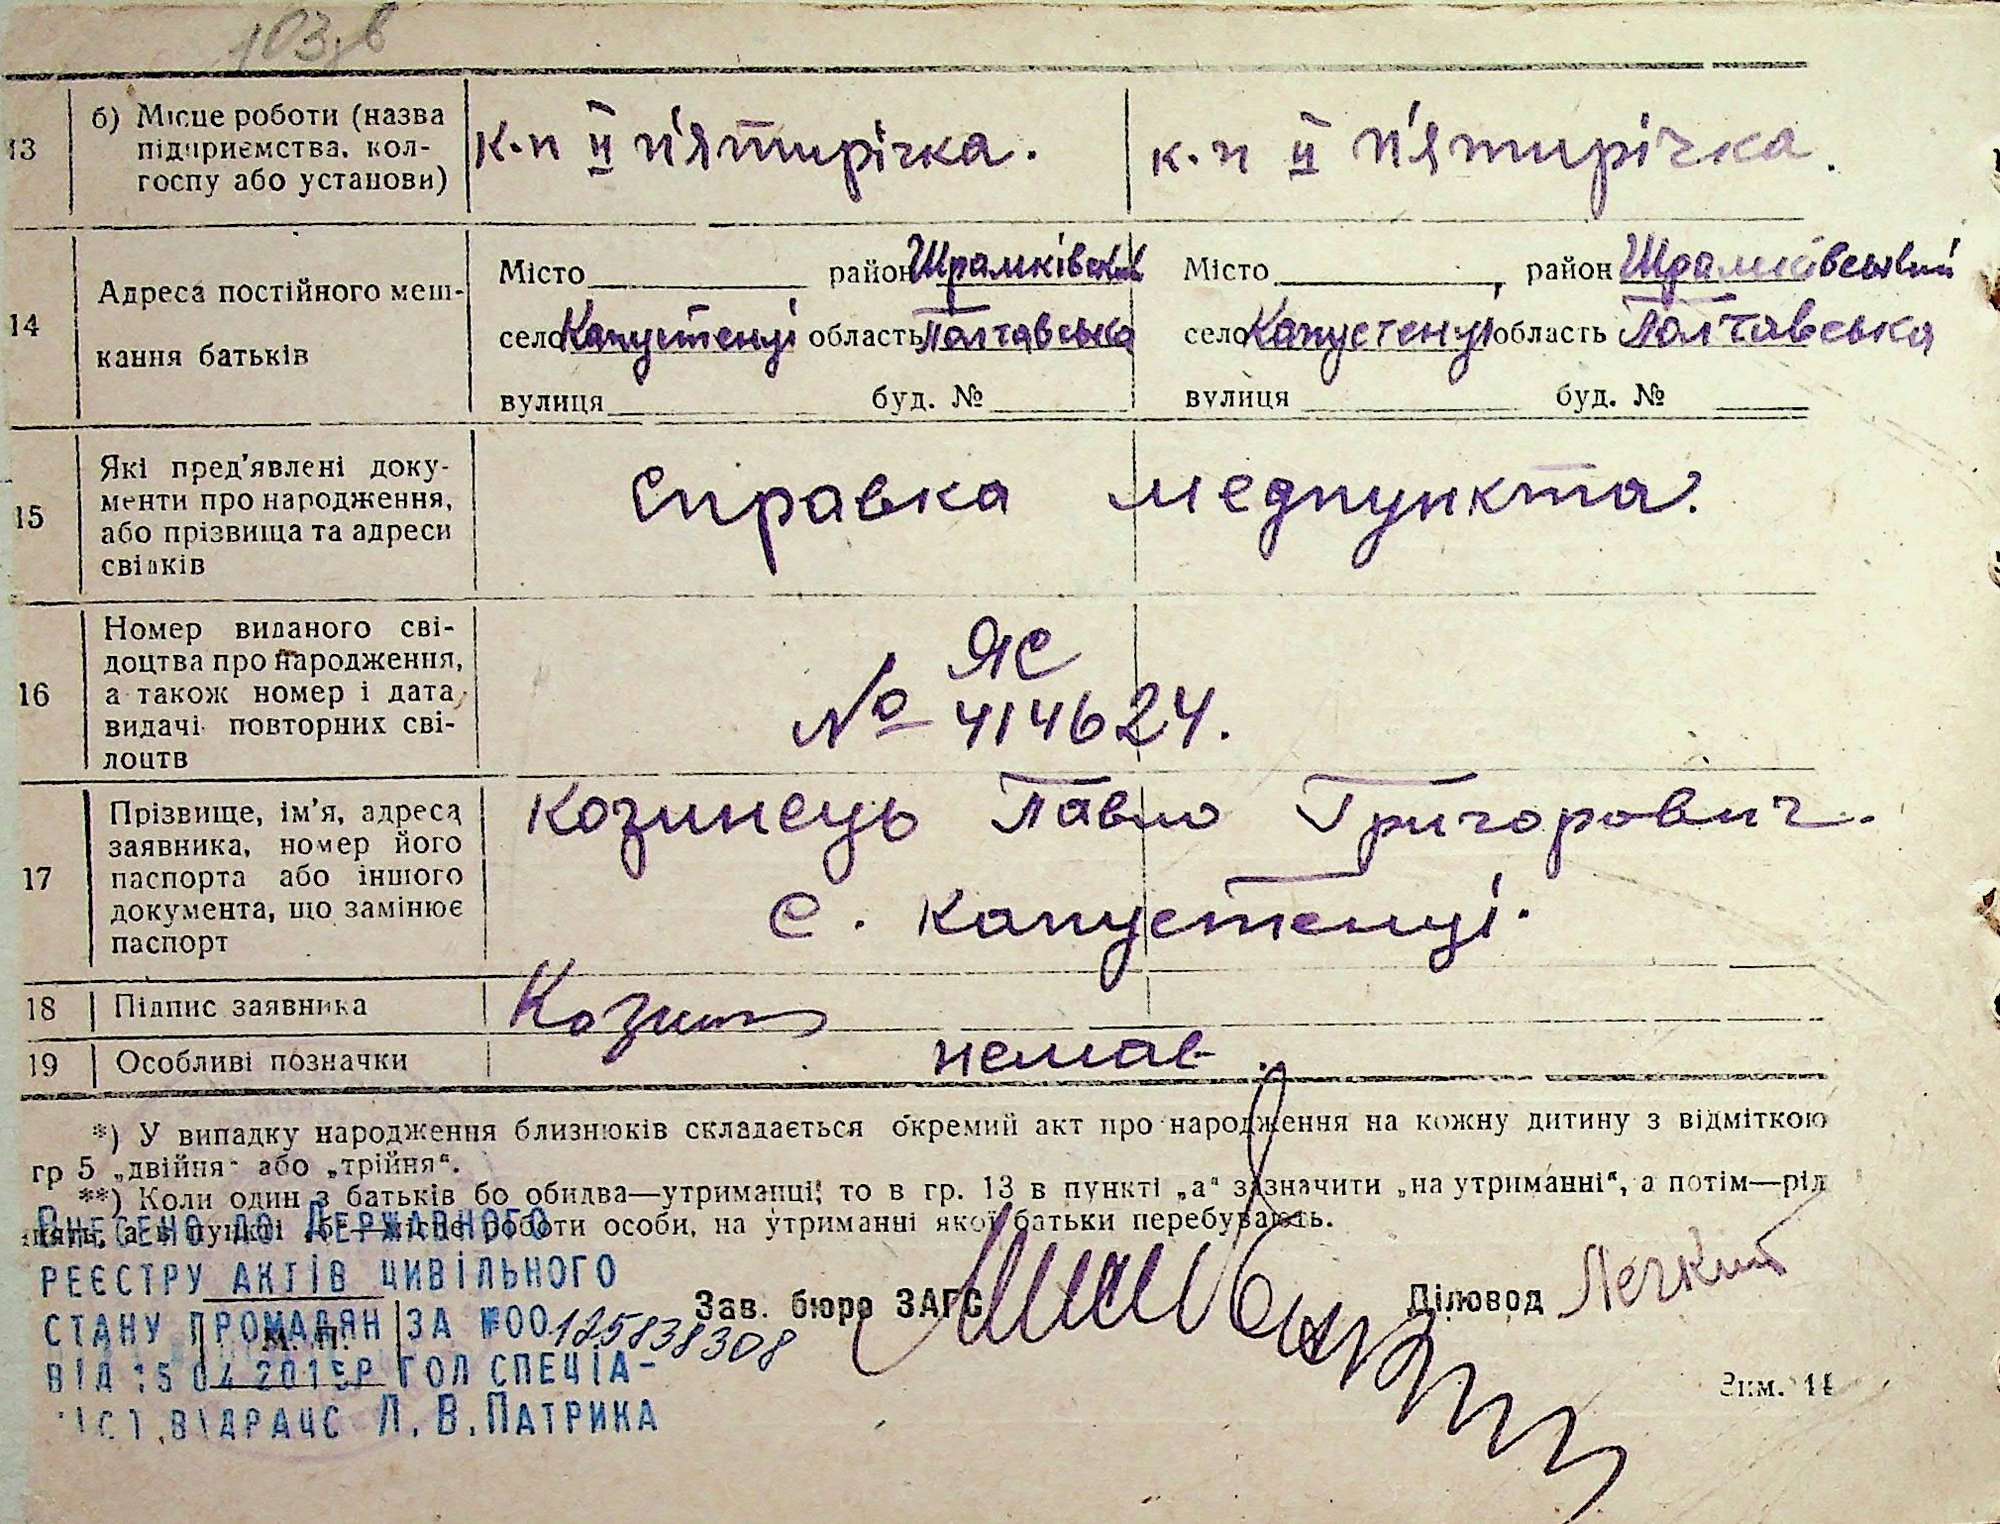 103,в
13 б) Місце роботи (назва підприємства, колгоспу або установи) к.п II п'ятирічка. к.п II п'ятирічка.
14 Адреса постійного мешкання батьків
Місто район Шрамківський Місто район Шрамківський
село Капустенці область Полтавська село Капустенці область Полтавська
вулиця буд. № вулиця буд. №
15 Які пред'явлені доку-
менти про народження,
або прізвища та адреси
свідків
Справка медпункта.
16 Номер виданого сві-
доцтва про народження,
а також номер і дата
видачі повторних сві-
доцтв
ЯС
№ 414624.
17 Прізвище, ім'я, адреса
заявника, номер його
паспорта або іншого
документа, що замінює
паспорт
Козинець Павло Григорович.
с. Капустенці.
18 Підпис заявника
19 Особливі позначки немає.
*) У випадку народження близнюків складається окремий акт про народження на кожну дитину з відміткою
гр 5 „двійня" або „трійня".
**) Коли один з батьків бо обидва—утриманці; то в гр. 13 в пункті „а" зазначити „на утриманні", а потім—ріл
а в пункті „б"—місце роботи особи, на утриманні якої батьки перебувають.
Внесено до Державного
реєстру актів цивільного
стану громадян за №00125838308
від 15 04 2015р гол спеціа-
ліст ВДРАЦС Л.В.Патрика
М. П.
Зав. бюро ЗАГС
Діловод Легкий
Зим. 11